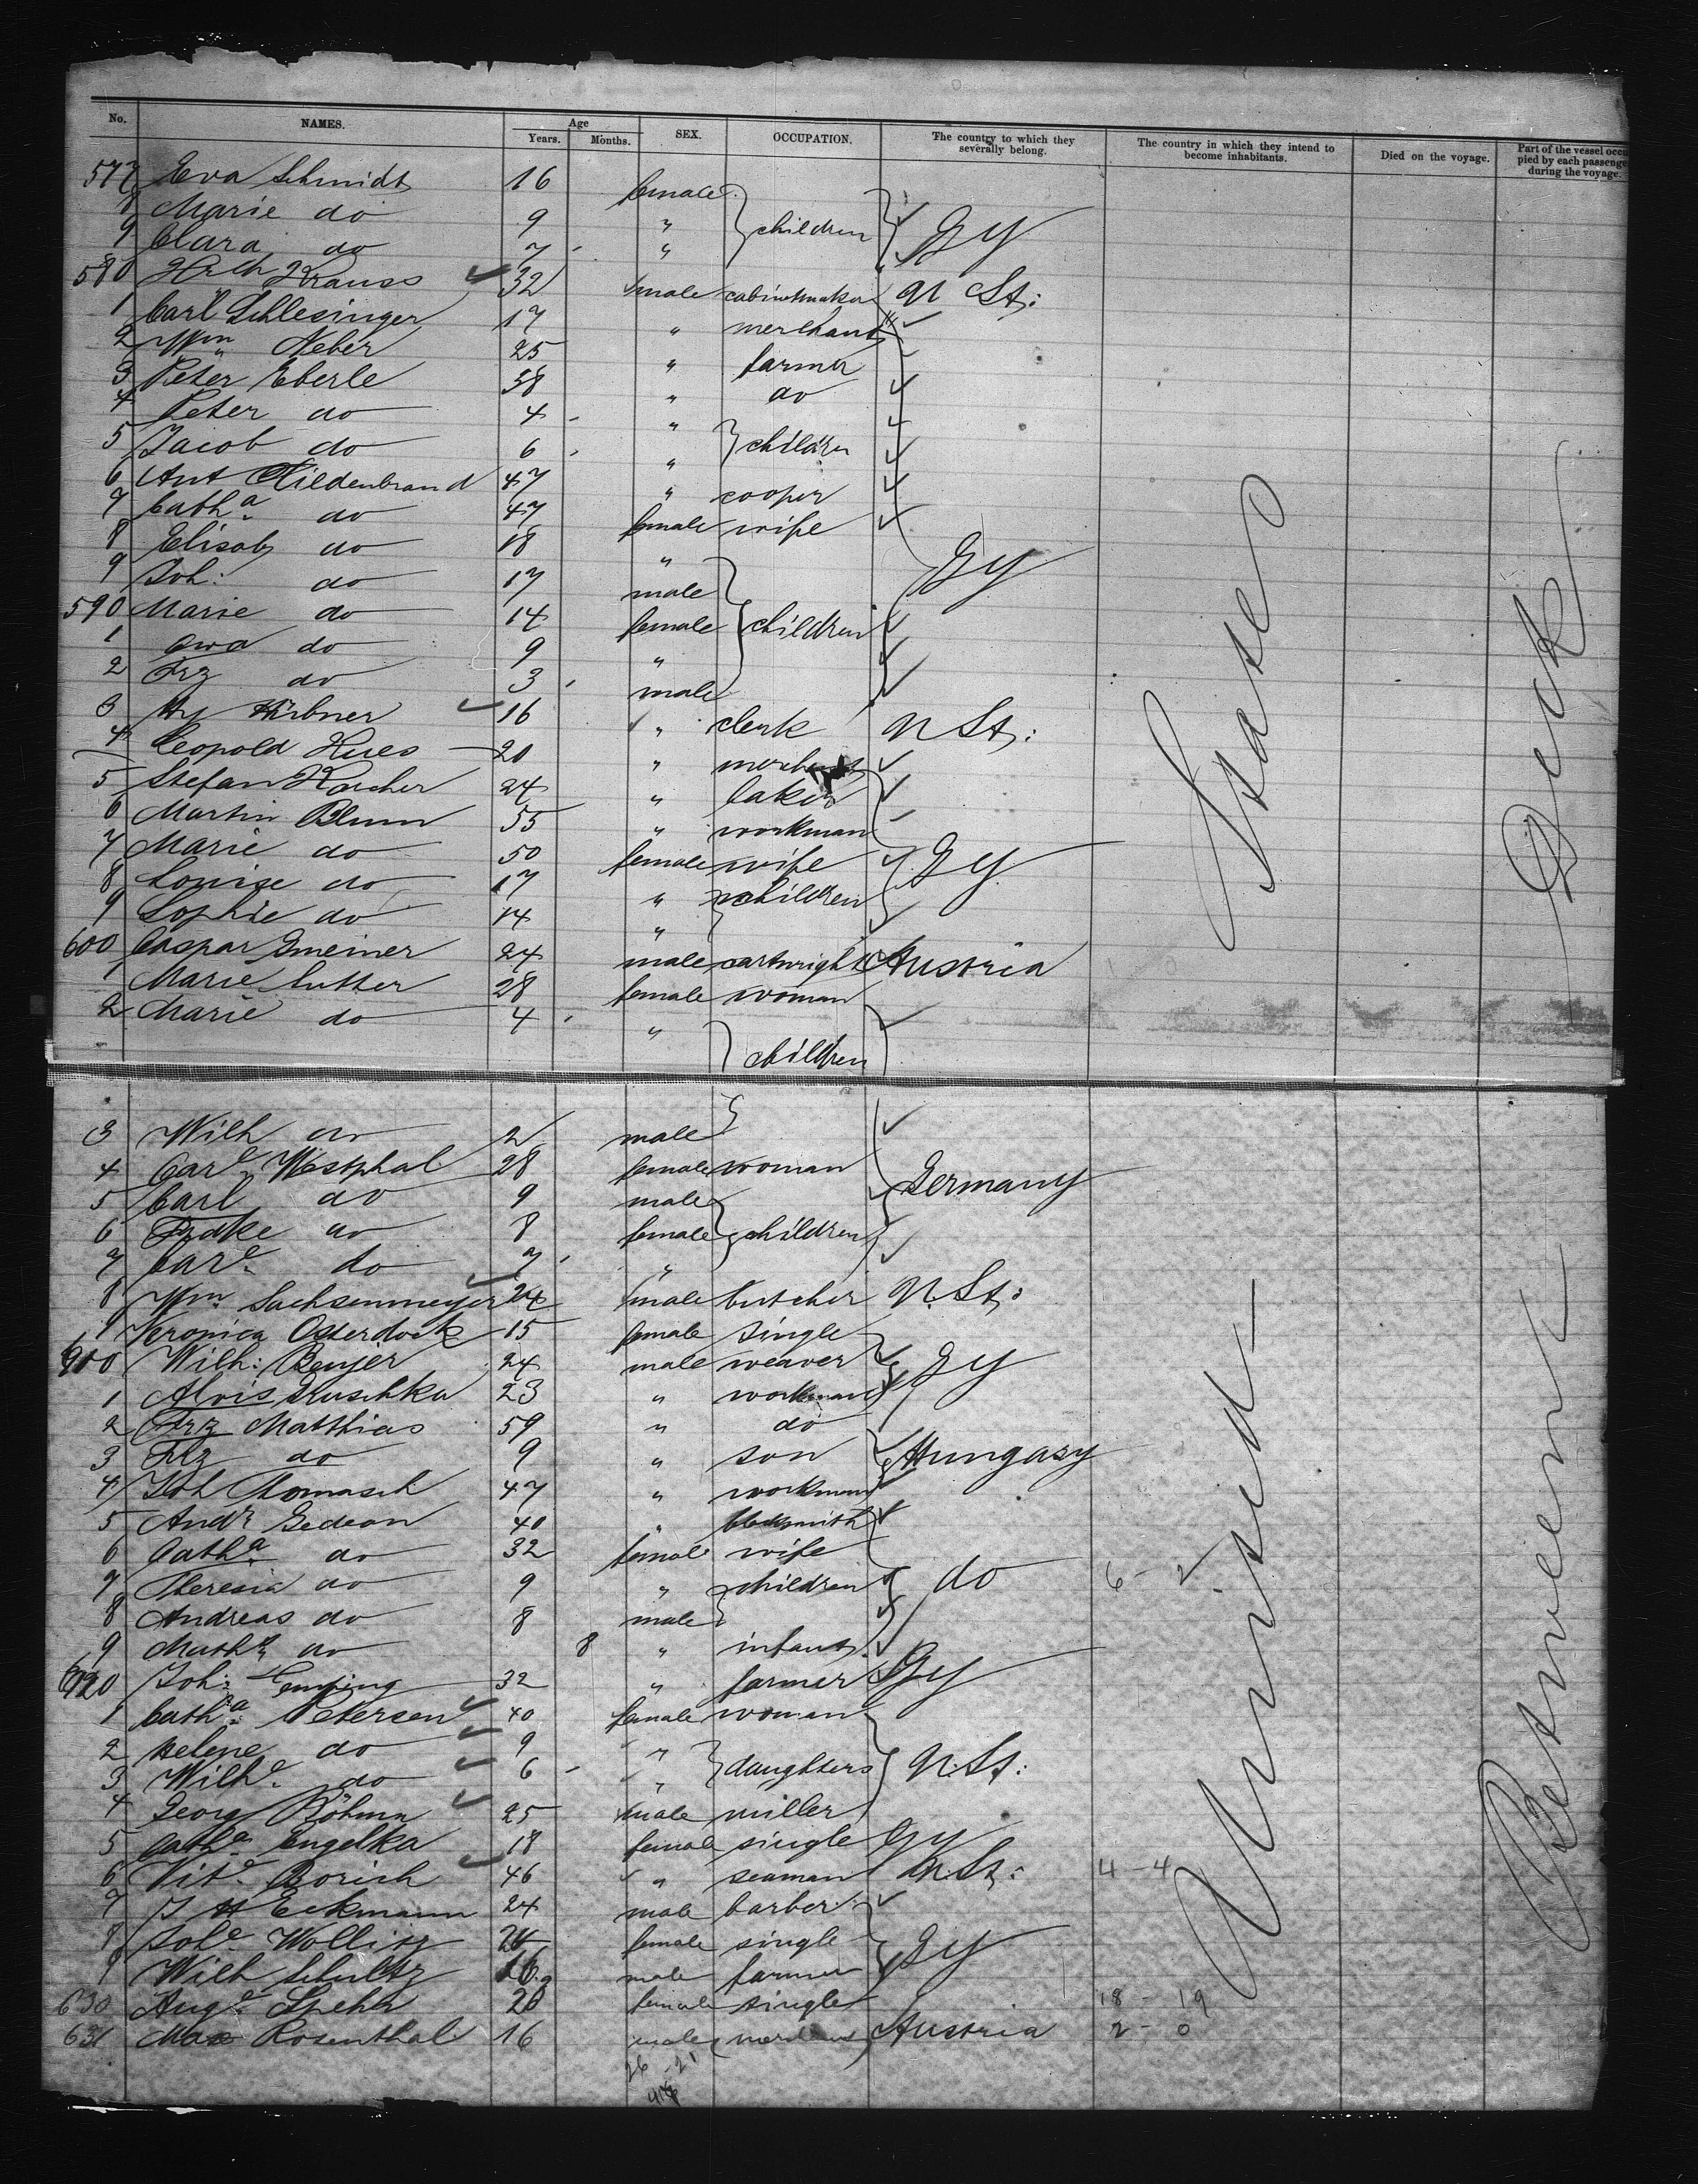 No. NAMES. Age Years. Months. SEX. OCCUPATION. The country to which they severally belong. The country in which they intend to become inhabitants. Died on the voyage. Part of the vessel occupied by each passenger during the voyage.
577 Eva Schmidt 16 female
8 Marie do 9 " children Gy
9 Clara do 7 "
580 Hrch Krauss 32 male cabinetmaker U St:
1 Carl Schlesinger 17 " merchant
2 Wm Neber 25 " farmer
3 Peter Eberle 38 " do
4 Peter do 4 "
5 Jacob do 6 " children
6 Ant Hildenbrand 47 " cooper
7 Catha do 47 female wife
8 Elisab do 18 " Gy
9 Joh: do 17 male
590 Marie do 14 female children
1 do 9 "
2 Frz do 3 male
3 Hy Hübner 16 " clerk U St:
4 Leopold Kues 20 " merchant
5 Stefan Karcher 24 " baker
6 Martin Blum 55 " workman
7 Marie do 50 female wife Gy
8 Louise do 17 " children
9 Sophie do 14 "
600 Caspar Gmeiner 24 male cartwright Austria
1 Marie Sutter 28 female woman
2 Marie do 4 "
children
3 Wilh do 2 male
4 Care Westphal 28 female woman Germany
5 Carl do 9 male
6 Fredke do 8 female children
7 Care do 7 "
8 Wm Sachsenmeyer 24 male butcher U. St:
9 Veronica Osterdock 15 female single
610 Wilh: Benjer 24 male weaver Gy
1 Alois Gruschka 23 " workman
2 Frz Matthias 59 " do
3 Frz do 9 " son Hungary
4 Joh Thomasch 47 " workman
5 Andr Gedeon 40 " blacksmith
6 Catha do 32 female wife
7 Theresia do 9 " children do 6 - 2
8 Andreas do 8 male
9 do 8 " infant
620 Joh: 32 " farmer Gy
1 Catha Petersen 40 female woman
2 Helene do 9 "
3 Wilhe do 6 " daughters U. St:
4 Georg Röhmn 25 male miller
5 Catha Engelka 18 female single Gy
6 Vite Borich 46 " seaman U. St: 4 - 4
7 J H Eckmann 24 male barber
8 Sole 24 female single Gy
9 Wilh Schultz 26 male farmer
630 Auge Spehr 20 female single 18 - 19
631 Max Rosenthal 16 male Austria 2 - 0
26 - 21
States
United
Deck
Betweenk